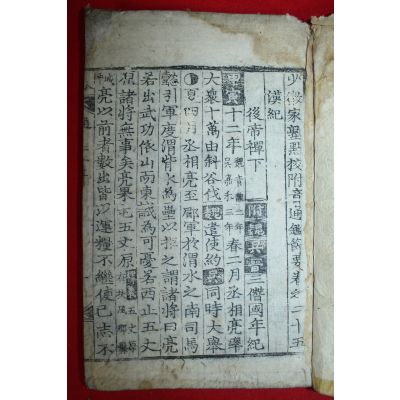 少微家塾點校附音通鑑節要卷之二十五
漢紀
後帝禪下 三僭國年紀
十二年 魏青龍二年 吳嘉禾三年 春二月丞相亮擧
大衆十萬由斜谷伐魏遣使約吳同時大擧
○夏四月丞相亮至郿軍於渭水之南司馬
懿引軍度渭背水爲壘以拒之謂諸將曰亮
若出武功依山而東誠爲可憂若西止五丈
原諸將無事矣亮果屯五丈原 五丈原
亮以前者數出皆以運糧不繼使己志不